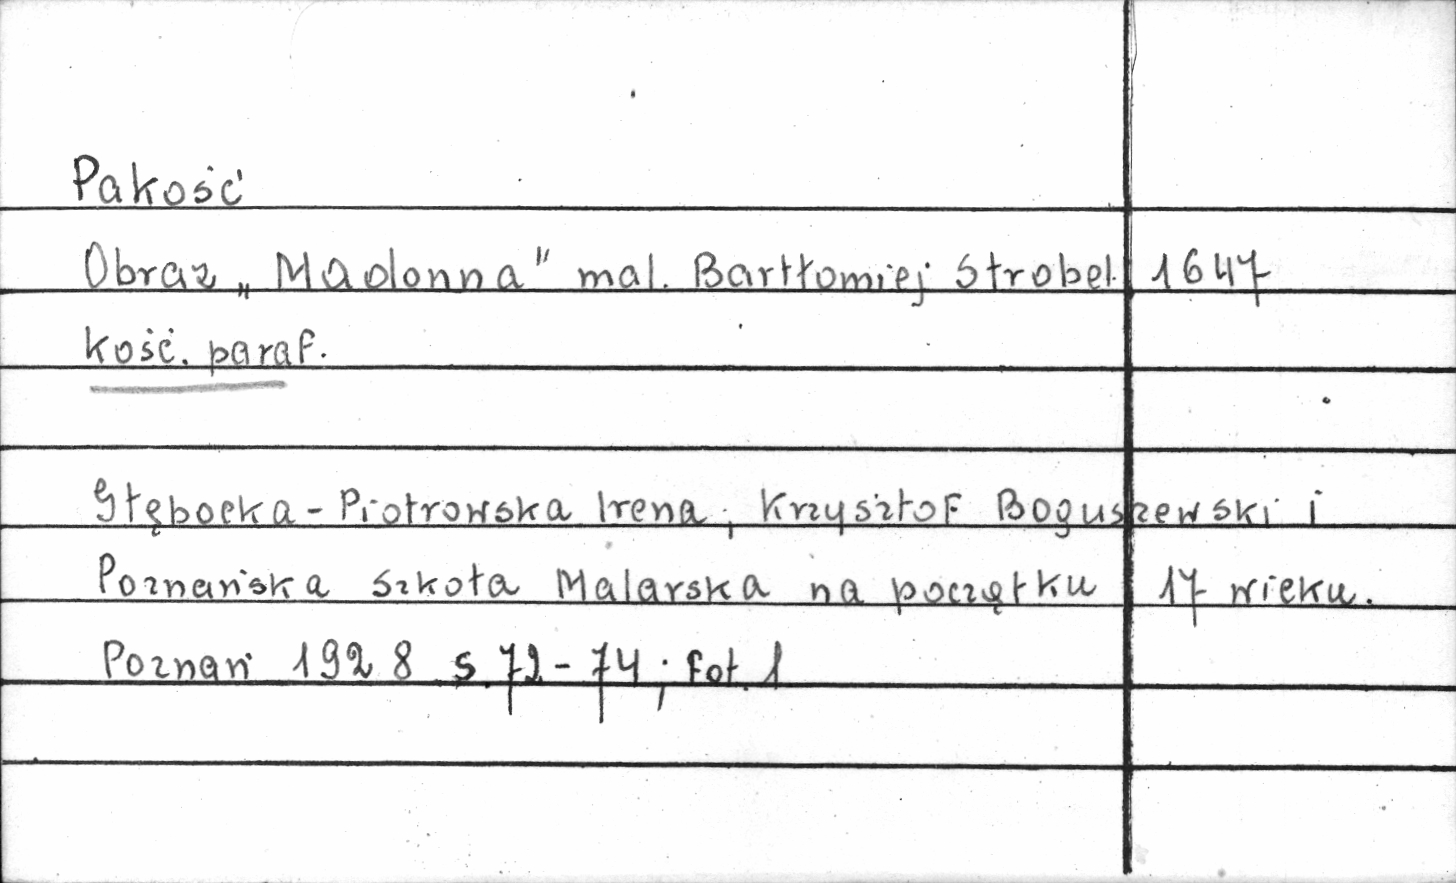 Pakość
Obraz „Madonna" mal. Bartłomiej Strobel. 1647
kość. paraf.
Głębocka-Piotrowska Irena; Krzysztof Boguszewski i
Poznańska Szkoła Malarska na początku 17 wieku.
Poznań 1928 s. 72-74; fot. 1